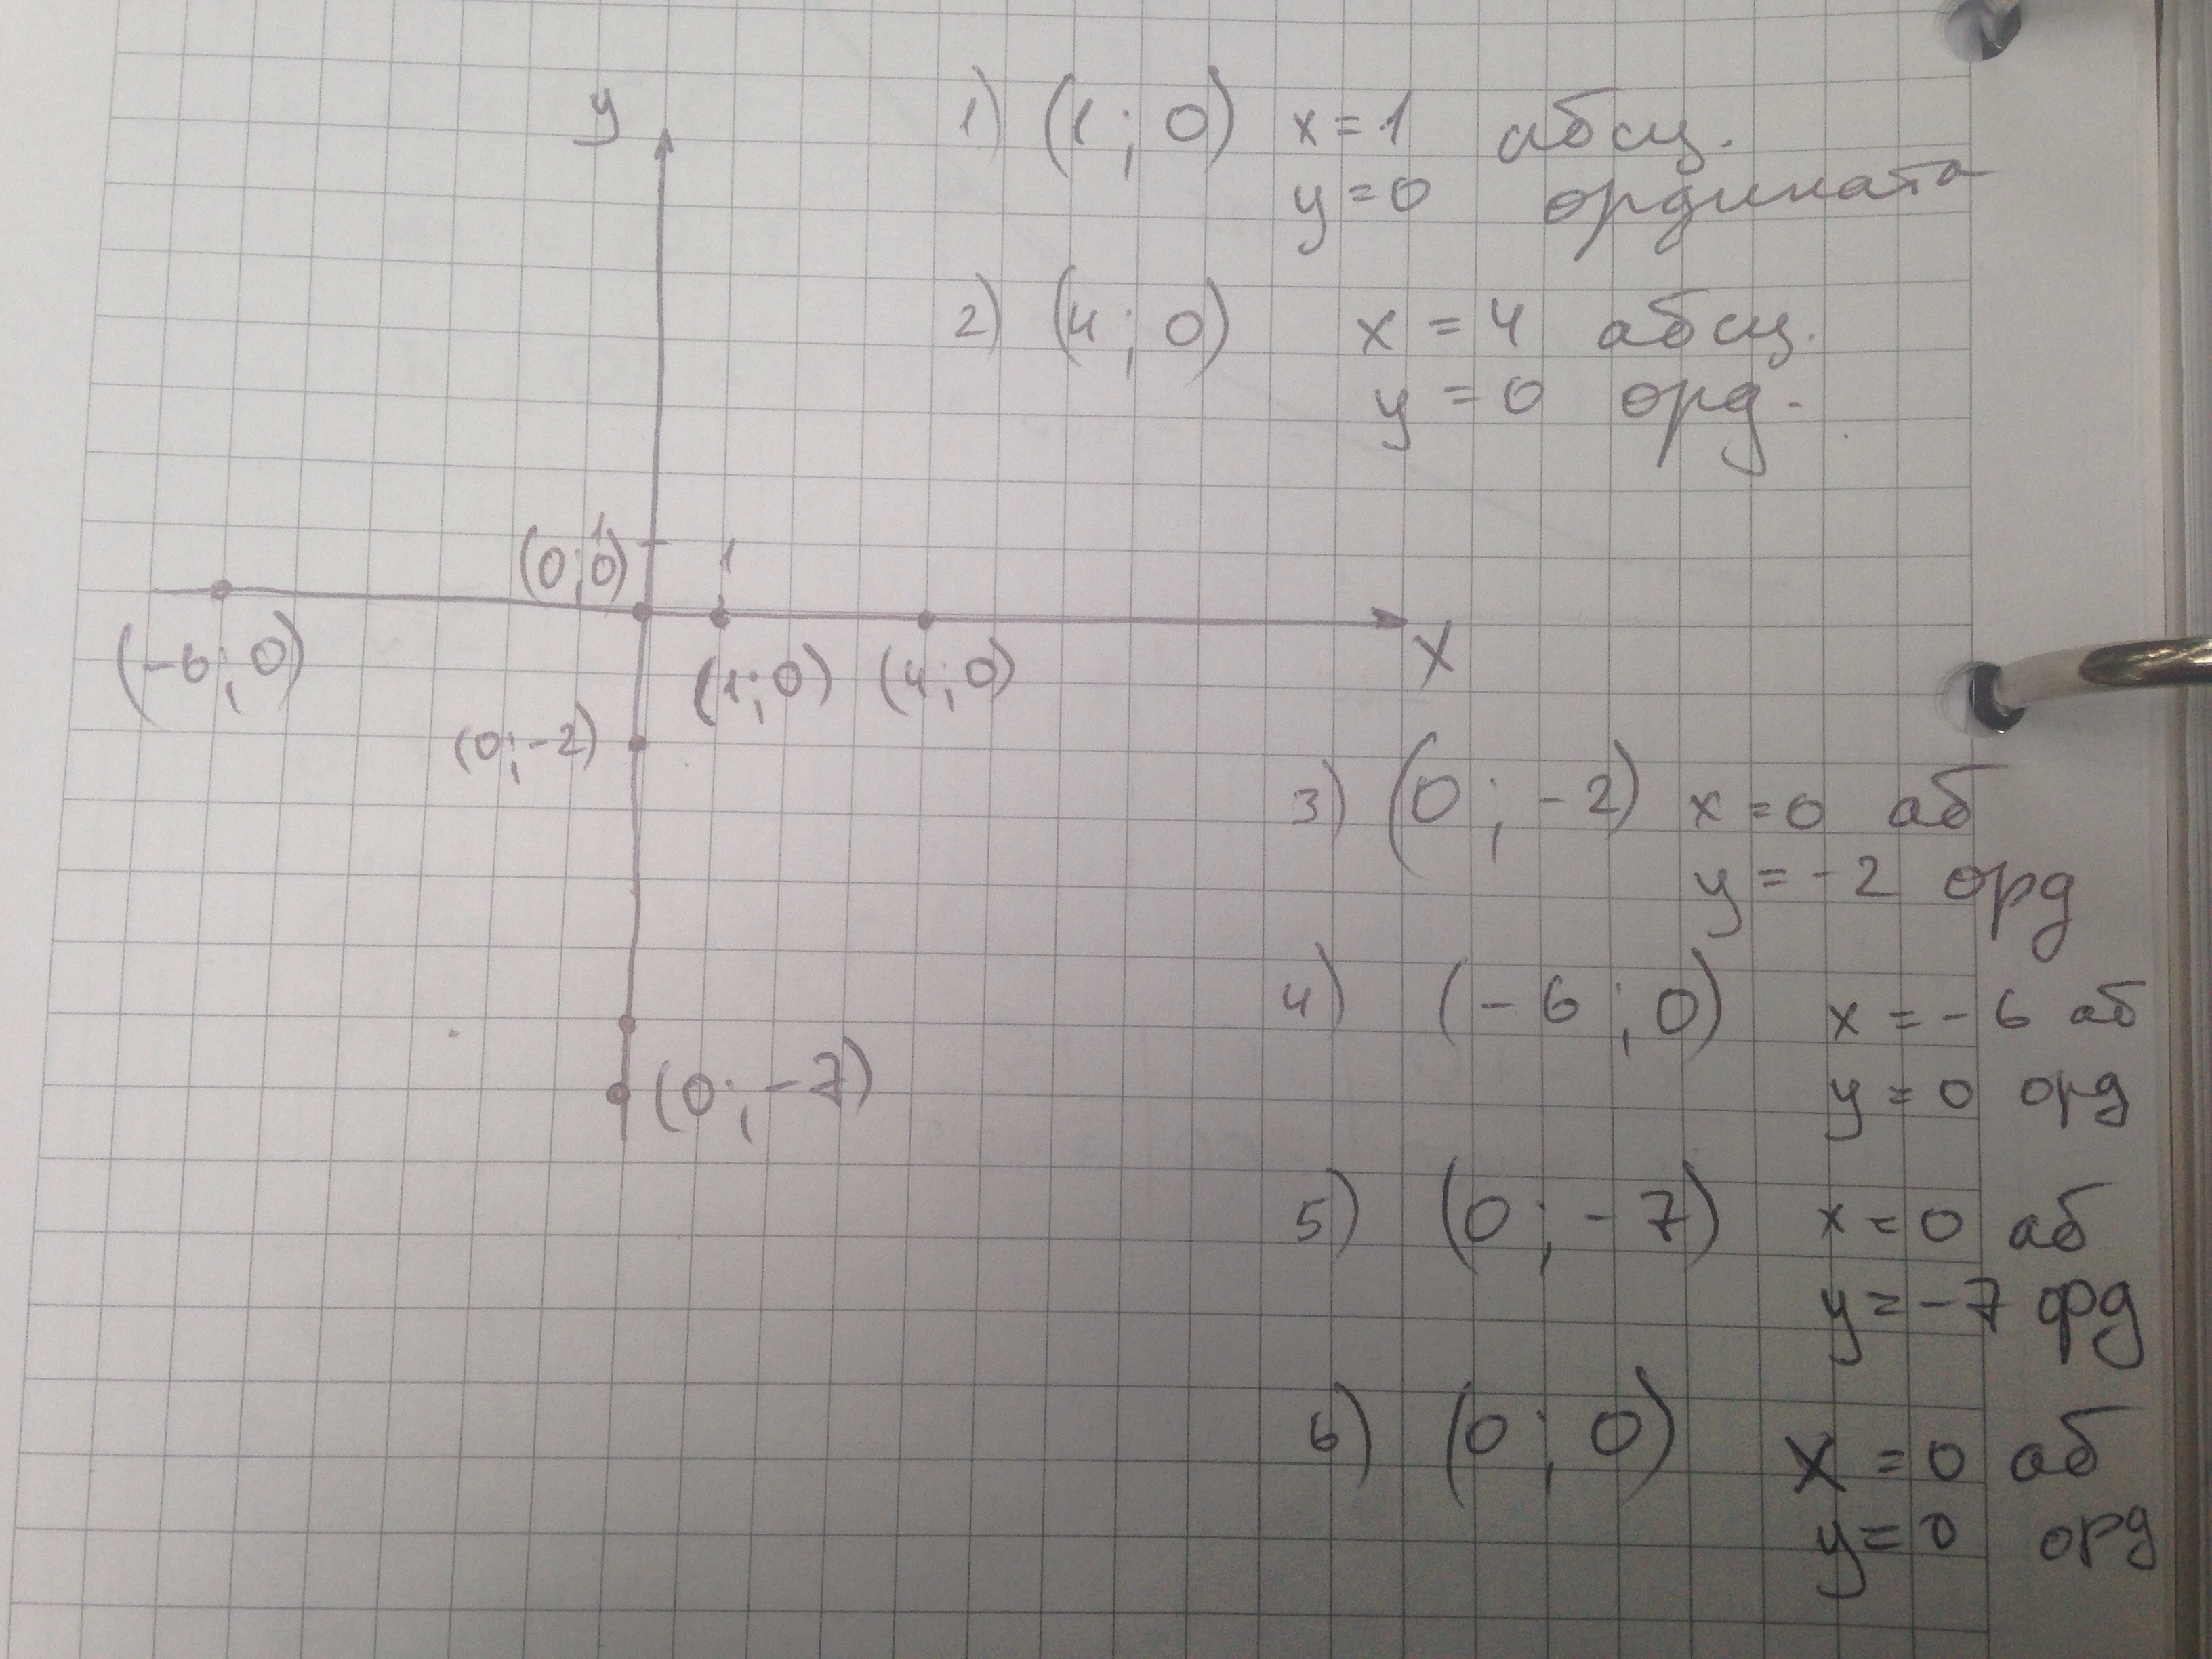 y
1) (1; 0) x = 1 абсц.
y = 0 ордината
2) (4; 0) x = 4 абсц.
y = 0 орд.
1
(0; 0)
1
x
(-6; 0)
(1; 0)
(4; 0)
(0; -2)
3) (0; -2) x = 0 аб
y = -2 орд
4) (-6; 0) x = -6 аб
y = 0 орд
(0; -7)
5) (0; -7) x = 0 аб
y = -7 орд
6) (0; 0) x = 0 аб
y = 0 орд